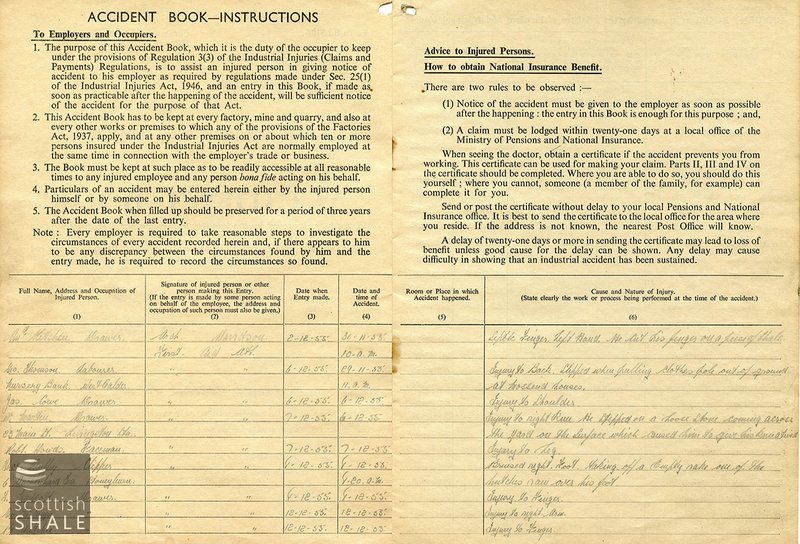 ACCIDENT BOOK—INSTRUCTIONS
To Employers and Occupiers.
1. The purpose of this Accident Book, which it is the duty of the occupier to keep
under the provisions of Regulation 3(3) of the Industrial Injuries (Claims and
Payments) Regulations, is to assist an injured person in giving notice of
accident to his employer as required by regulations made under Sec. 25(1)
of the Industrial Injuries Act, 1946, and an entry in this Book, if made as
soon as practicable after the happening of the accident, will be sufficient
notice of the accident for the purpose of that Act.
2. This Accident Book has to be kept at every factory, mine and quarry, and also at
every other works or premises to which any of the provisions of the Factories
Act, 1937, apply, and at any other premises on or about which ten or more
persons insured under the Industrial Injuries Act are normally employed at
the same time in connection with the employer's trade or business.
3. The Book must be kept at such place as to be readily accessible at all reasonable
times to any injured employee and any person bona fide acting on his behalf.
4. Particulars of an accident may be entered herein either by the injured person
himself or by someone on his behalf.
5. The Accident Book when filled up should be preserved for a period of three years
after the date of the last entry.
Note : Every employer is required to take reasonable steps to investigate the
circumstances of every accident recorded herein and, if there appears to him
to be any discrepancy between the circumstances found by him and the
entry made, he is required to record the circumstances so found.
Advice to Injured Persons.
How to obtain National Insurance Benefit.
There are two rules to be observed :—
(1) Notice of the accident must be given to the employer as soon as possible
after the happening : the entry in this Book is enough for this purpose ; and,
(2) A claim must be lodged within twenty-one days at a local office of the
Ministry of Pensions and National Insurance.
When seeing the doctor, obtain a certificate if the accident prevents you from
working. This certificate can be used for making your claim. Parts II, III and IV on
the certificate should be completed. Where you are able to do so, you should do this
yourself ; where you cannot, someone (a member of the family, for example) can
complete it for you.
Send or post the certificate without delay to your local Pensions and National
Insurance office. It is best to send the certificate to the local office for the area where
you reside. If the address is not known, the nearest Post Office will know.
A delay of twenty-one days or more in sending the certificate may lead to loss of
benefit unless good cause for the delay can be shown. Any delay may cause
difficulty in showing that an industrial accident has been sustained.
Full Name, Address and Occupation of
Injured Person.
(1)
Signature of injured person or other
person making this Entry.
(If the entry is made by some person acting
on behalf of the employee, the address and
occupation of such person must also be given.)
(2)
Date when
Entry made.
(3)
Date and
time of
Accident.
(4)
Room or Place in which
Accident happened.
(5)
Cause and Nature of Injury.
(State clearly the work or process being performed at the time of the accident.)
(6)
Drawer. Davidson 2-12-55. 30-11-55. Little Finger. Left Hand. He cut his finger on a piece of shale
First Aid Att. 10 a.m.
Geo. Thomson. Labourer. " " 6-12-55. 29-11-55. Injury to Back. Slipped when pulling clothes pole out of ground
Nursery Bank. West Calder. 11 a.m. at houses.
Jas. Lowe Drawer " " 6-12-55. 6-12-55. Injury to Shoulder
Drawer. " " 7-12-55. 6-12-55 Injury to right Knee. He slipped on a loose stone coming across
Main St. Livingston Stn. the yard on the surface which caused him to give his knee a twist
Robt. Faceman. " " 7-12-55. 7-12-55. Injury to Leg
Bruised right Foot. Taking off a empty rake one of the
hutches ran over his foot
Drawer. " " Injury to Finger.
" " 12-12-55. 12-12-55. Injury to right Arm.
" " Injury to Finger.
scottish
SHALE